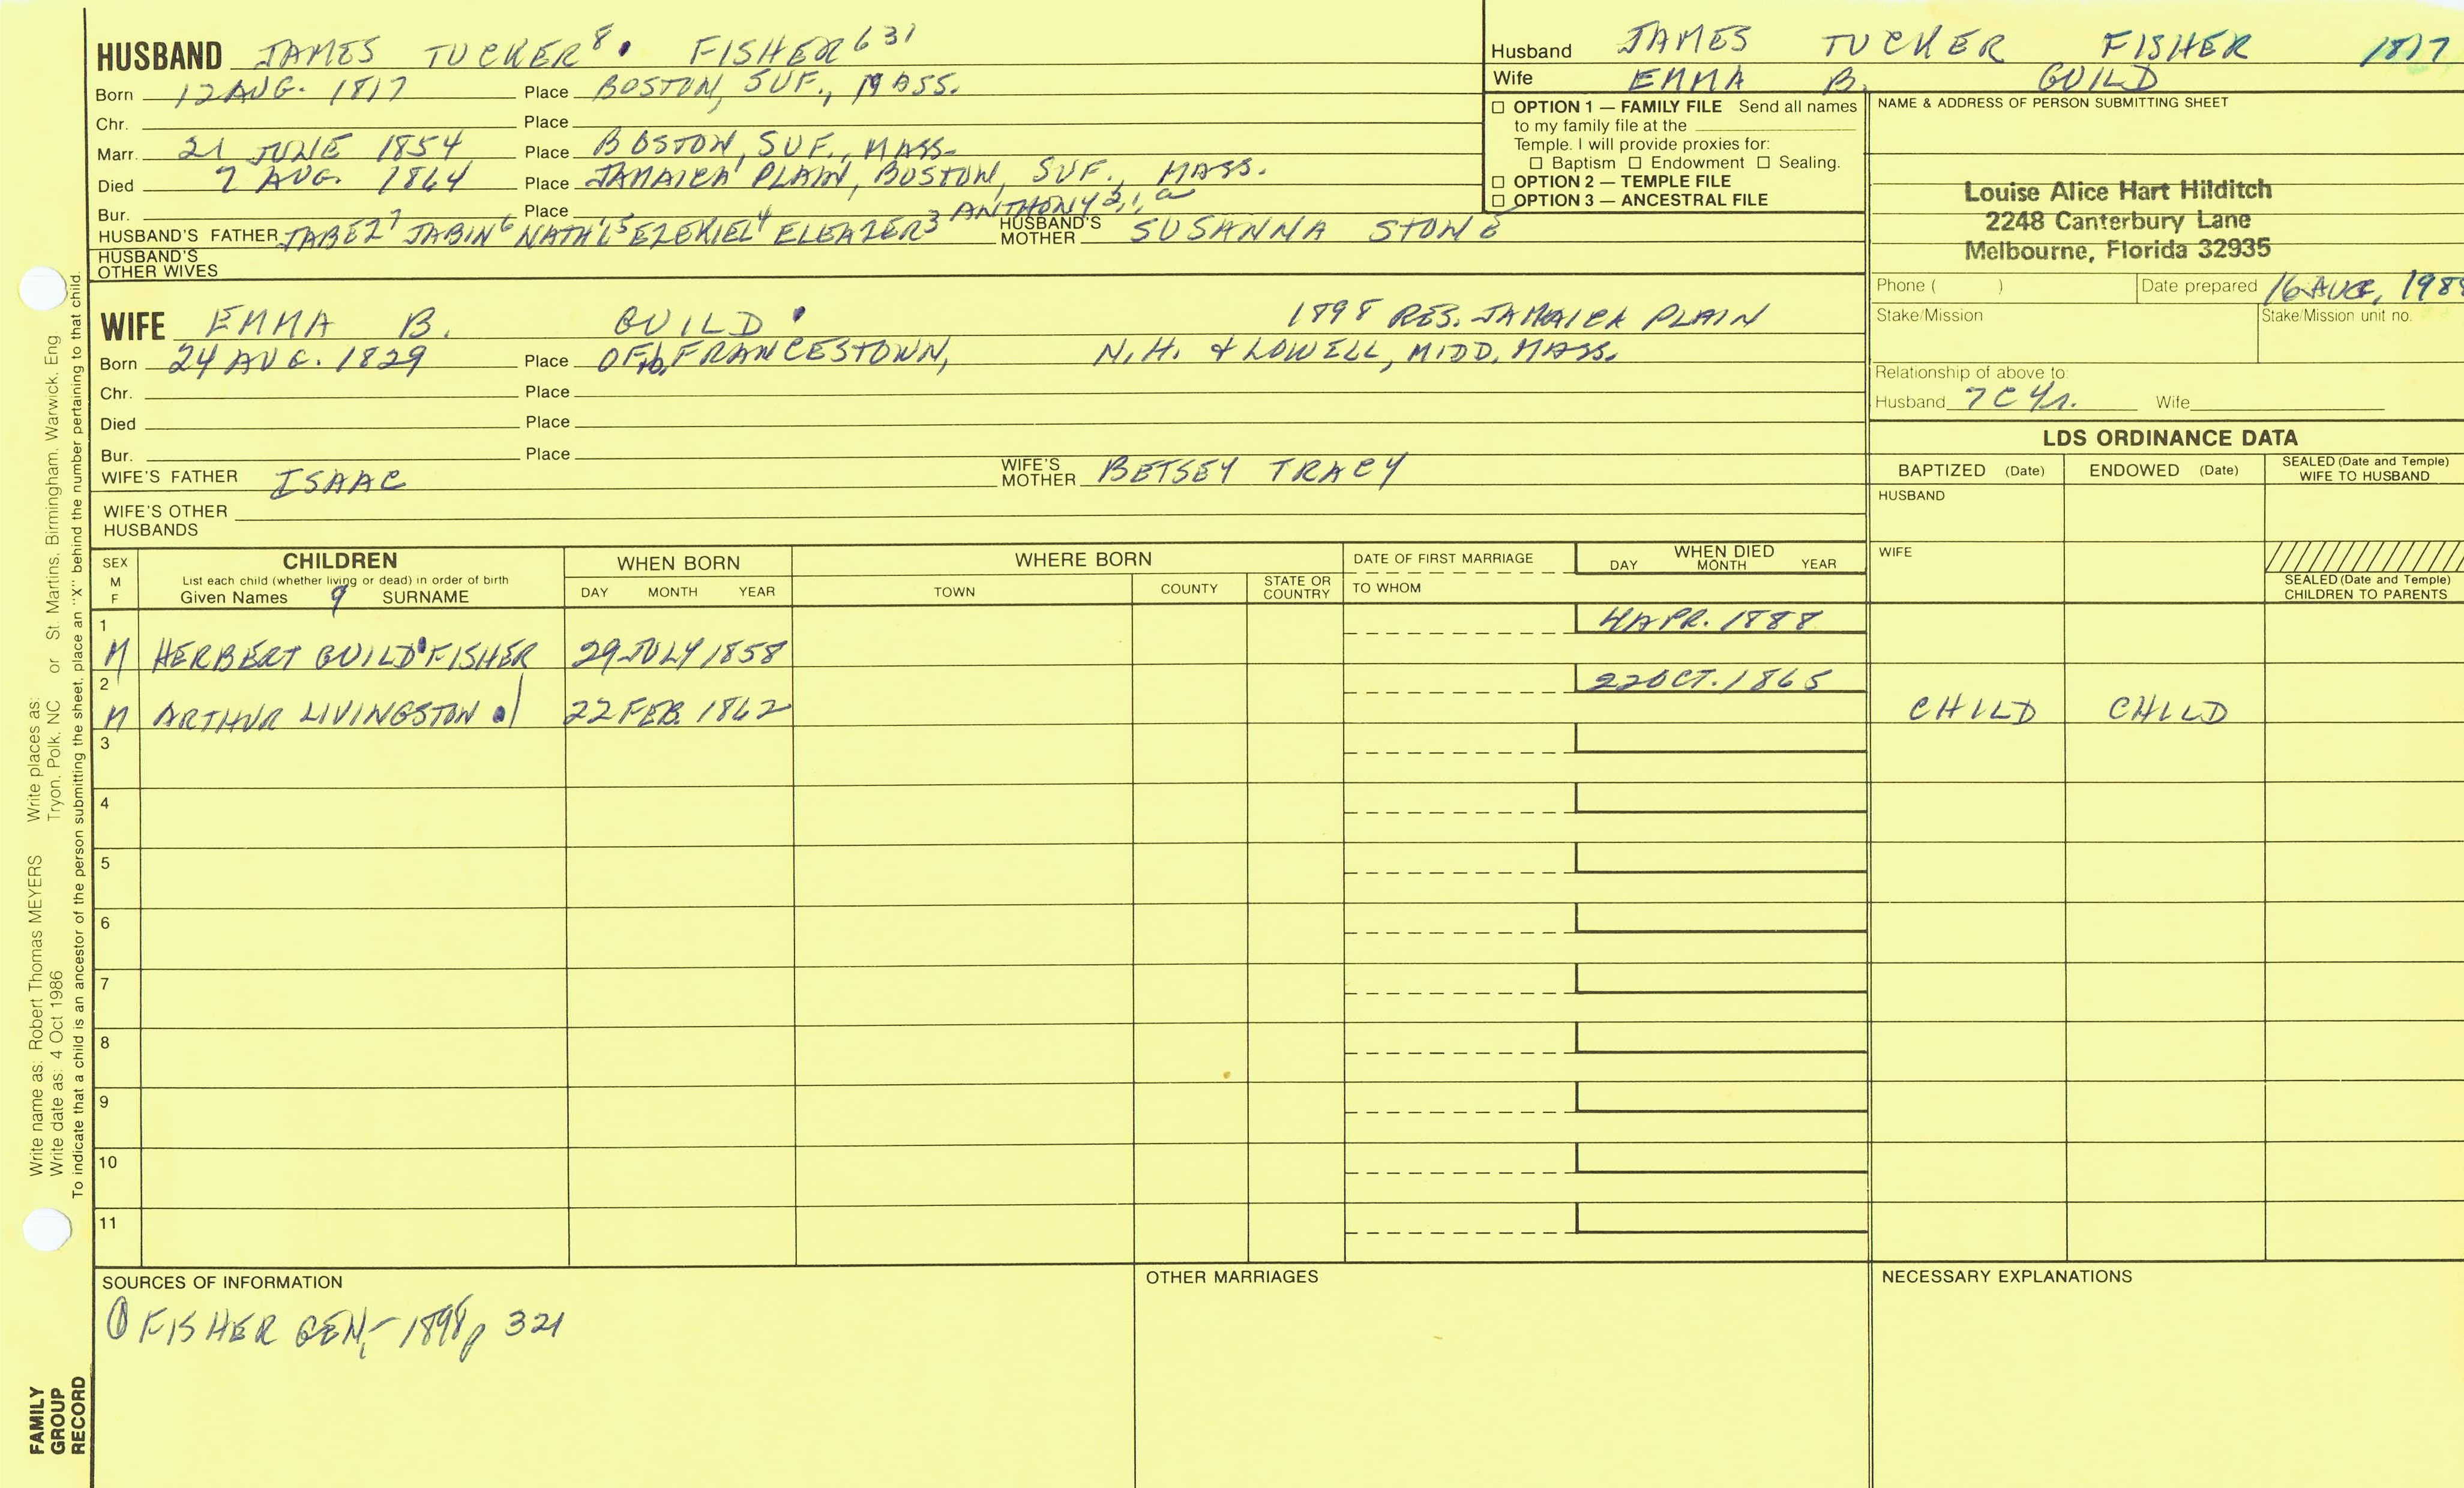 HUSBAND JAMES TUCKER 8 . FISHER 631
Born 12 AUG. 1817 Place BOSTON, SUF., MASS.
Chr. Place
Marr. 21 JUNE 1854 Place BOSTON, SUF., MASS.
Died 7 AUG. 1864 Place JAMAICA PLAIN, BOSTON, SUF., MASS.
Bur. Place ANTHONY 2,1,a
HUSBAND'S FATHER JABEZ 7 JABIN 6 NATH'L 5 EZEKIEL 4 ELEAZER 3 HUSBAND'S MOTHER SUSANNA STONE
HUSBAND'S OTHER WIVES
Husband JAMES TUCKER FISHER 1817
Wife EMMA B. GUILD
☐ OPTION 1 — FAMILY FILE Send all names
to my family file at the
Temple. I will provide proxies for:
☐ Baptism ☐ Endowment ☐ Sealing.
☐ OPTION 2 — TEMPLE FILE
☐ OPTION 3 — ANCESTRAL FILE
NAME & ADDRESS OF PERSON SUBMITTING SHEET
Louise Alice Hart Hilditch
2248 Canterbury Lane
Melbourne, Florida 32935
Phone ( ) Date prepared 16 AUG, 198
Stake/Mission Stake/Mission unit no.
Relationship of above to:
Husband 7C4r. Wife
WIFE EMMA B. GUILD . 1898 RES. JAMAICA PLAIN
Born 24 AUG. 1829 Place OF FRANCESTOWN, N.H. & LOWELL, MIDD, MASS.
Chr. Place
Died Place
Bur. Place
WIFE'S FATHER ISAAC WIFE'S MOTHER BETSEY TRACY
WIFE'S OTHER
HUSBANDS
LDS ORDINANCE DATA
BAPTIZED (Date) ENDOWED (Date) SEALED (Date and Temple) WIFE TO HUSBAND
HUSBAND
WIFE
SEALED (Date and Temple)
CHILDREN TO PARENTS
SEX M F CHILDREN
List each child (whether living or dead) in order of birth
Given Names 9 SURNAME
WHEN BORN
DAY MONTH YEAR
WHERE BORN
TOWN COUNTY STATE OR COUNTRY
DATE OF FIRST MARRIAGE
TO WHOM
WHEN DIED
DAY MONTH YEAR
1 4 APR. 1888
M HERBERT GUILD FISHER 29 JULY 1858
2 22 OCT. 1865
M ARTHUR LIVINGSTON 22 FEB. 1862 CHILD CHILD
3
4
5
6
7
8
9
10
11
SOURCES OF INFORMATION
① FISHER GEN,-1898 p 321
OTHER MARRIAGES
NECESSARY EXPLANATIONS
Write name as: Robert Thomas MEYERS Write places as:
Write date as: 4 Oct 1986 Tryon, Polk, NC or St. Martins, Birmingham, Warwick, Eng
To indicate that a child is an ancestor of the person submitting the sheet, place an "X" behind the number pertaining to that child.
FAMILY
GROUP
RECORD